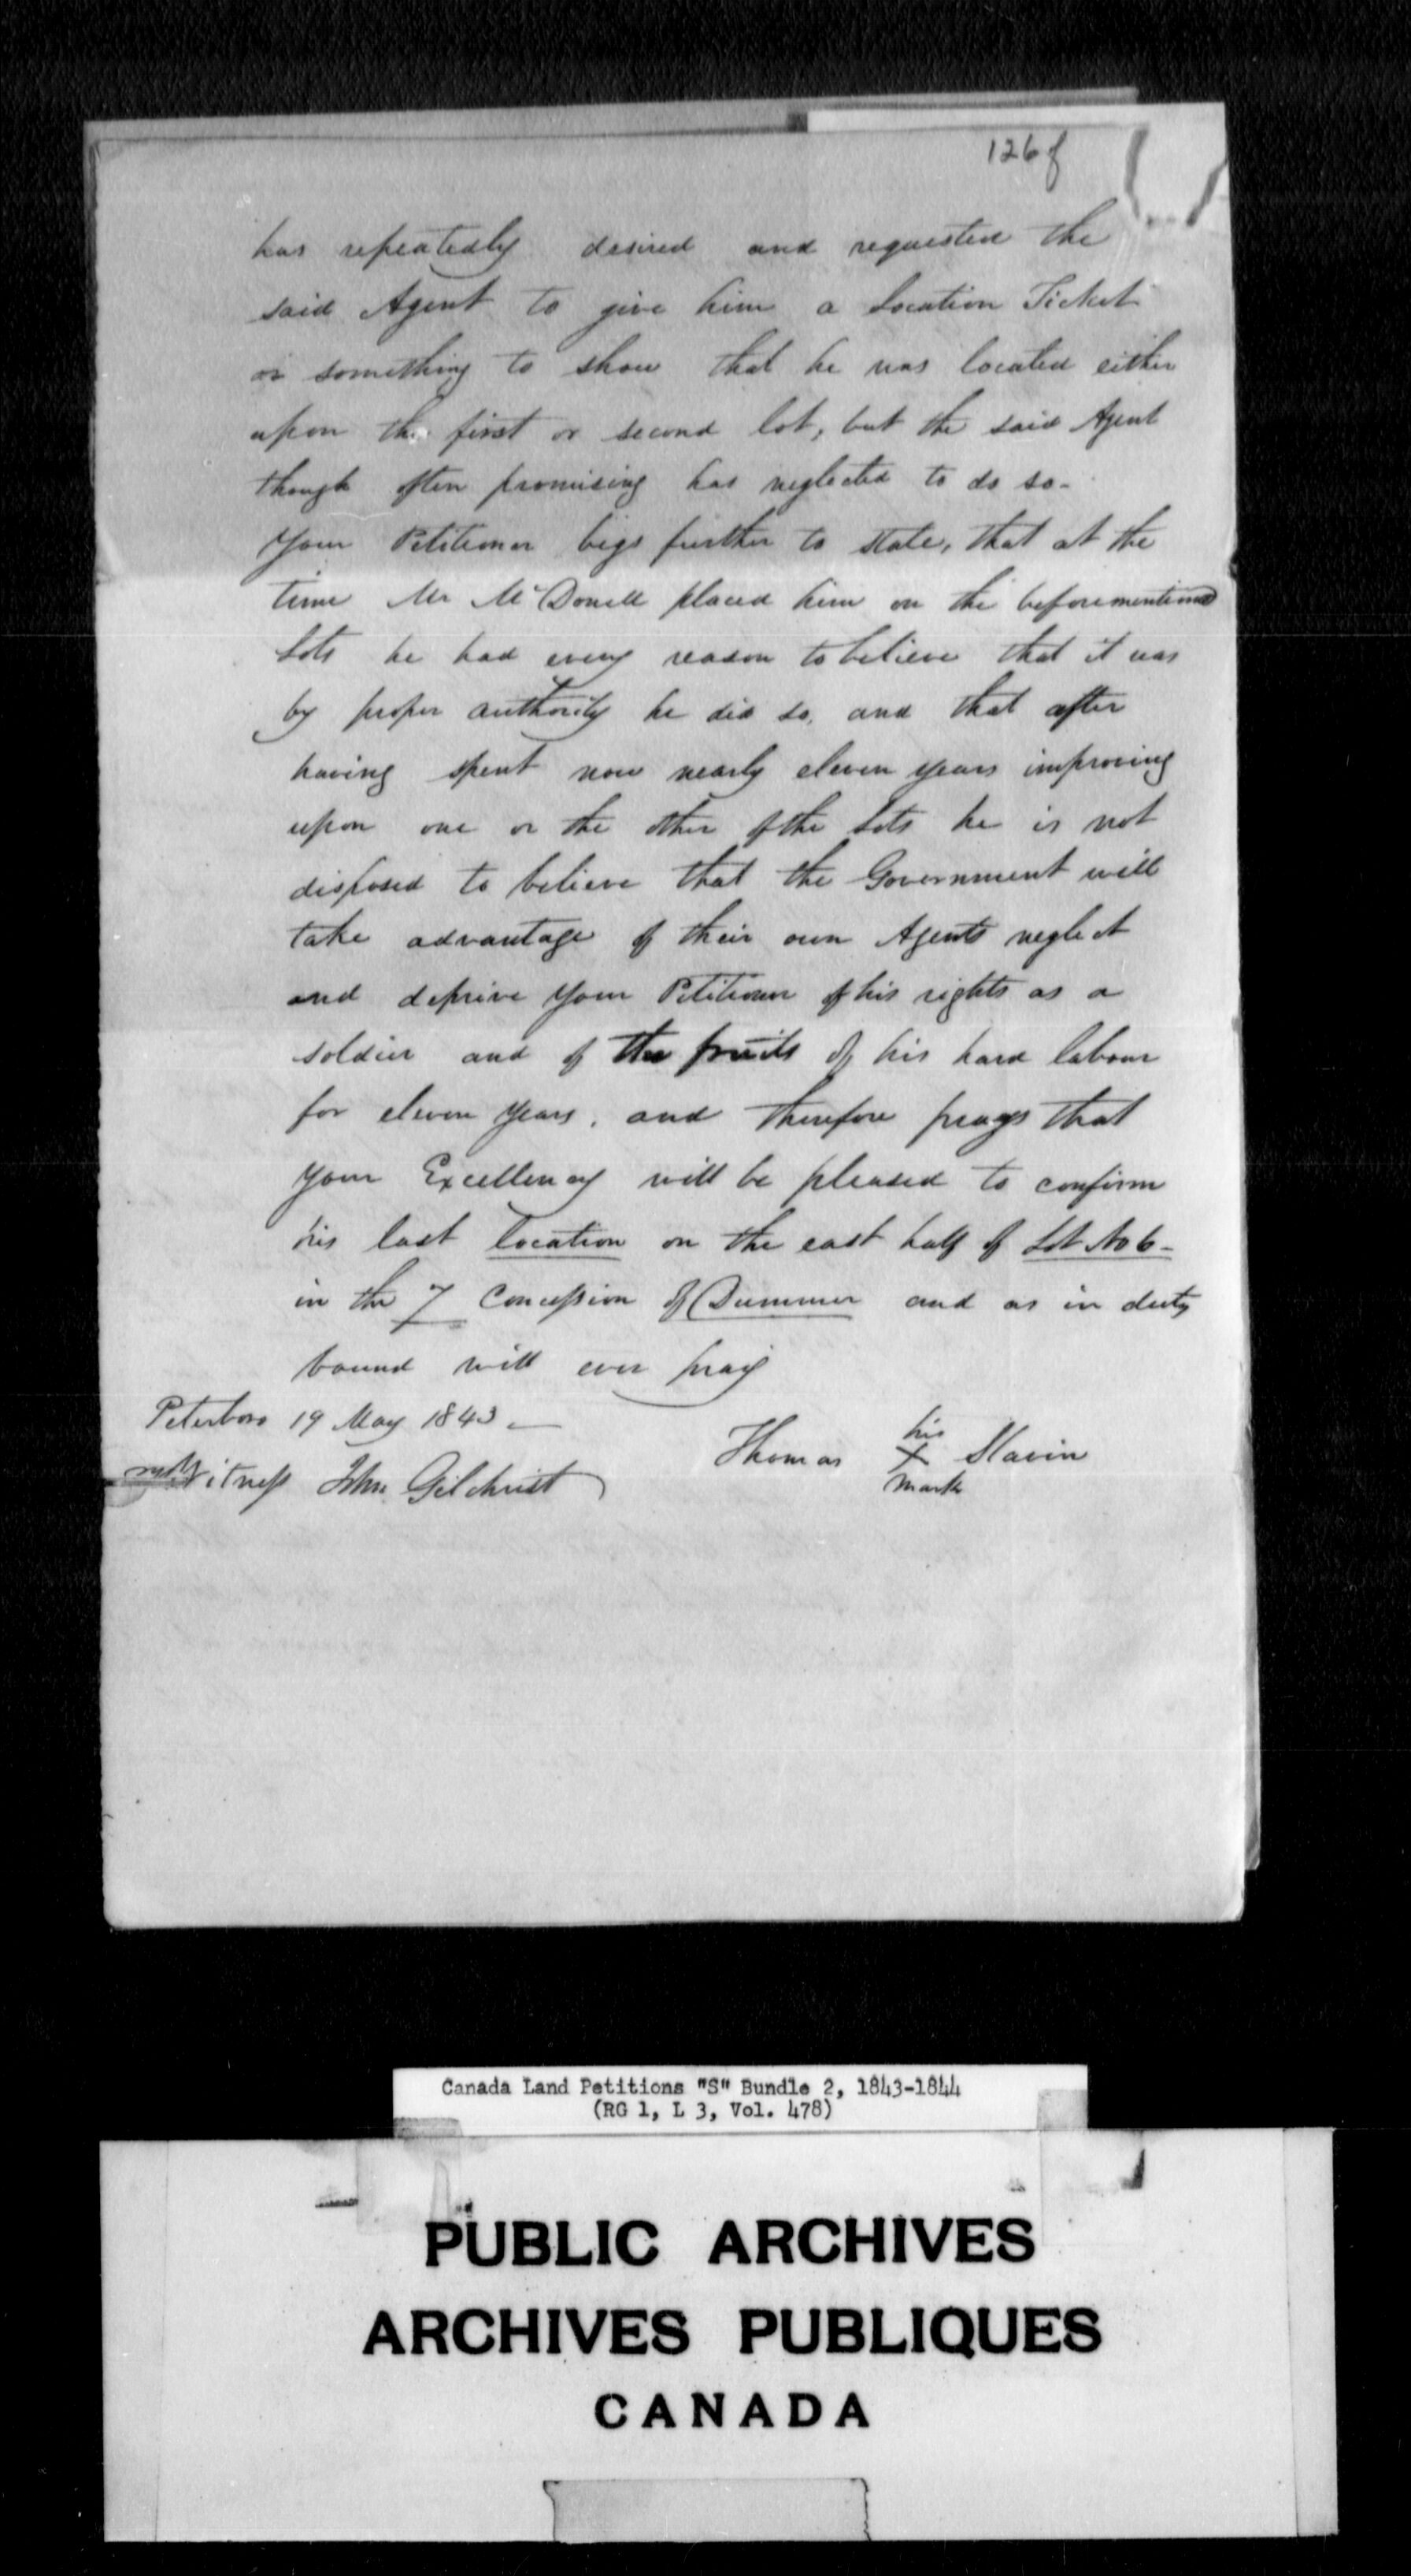 126f
has repeatedly desired and requested the
said Agent to give him a Location Ticket
or something to show that he was located either
upon the first or second lot, but the said Agent
though often promising has neglected to do so-
Your Petitioner begs further to state, that at the
time Mr McDonell placed him on the beforementioned
Lots he had every reason to believe that it was
by proper authority he did so, and that after
having spent now nearly eleven years improving
upon one or the other of the Lots he is not
disposed to believe that the Government will
take advantage of their own Agents neglect
and deprive your Petitioner of his rights as a
soldier and of the fruits of his hard labour
for eleven years, and therefore prays that
your Excellency will be pleased to confirm
his last location on the east half of Lot No 6-
in the 7 Concession of Dummer and as in duty
bound will ever pray
Peterboro 19 May 1843-
Witness John Gilchrist
Thomas his X mark Slavin
Canada Land Petitions "S" Bundle 2, 1843-1844
(RG 1, L 3, Vol. 478)
PUBLIC ARCHIVES
ARCHIVES PUBLIQUES
CANADA